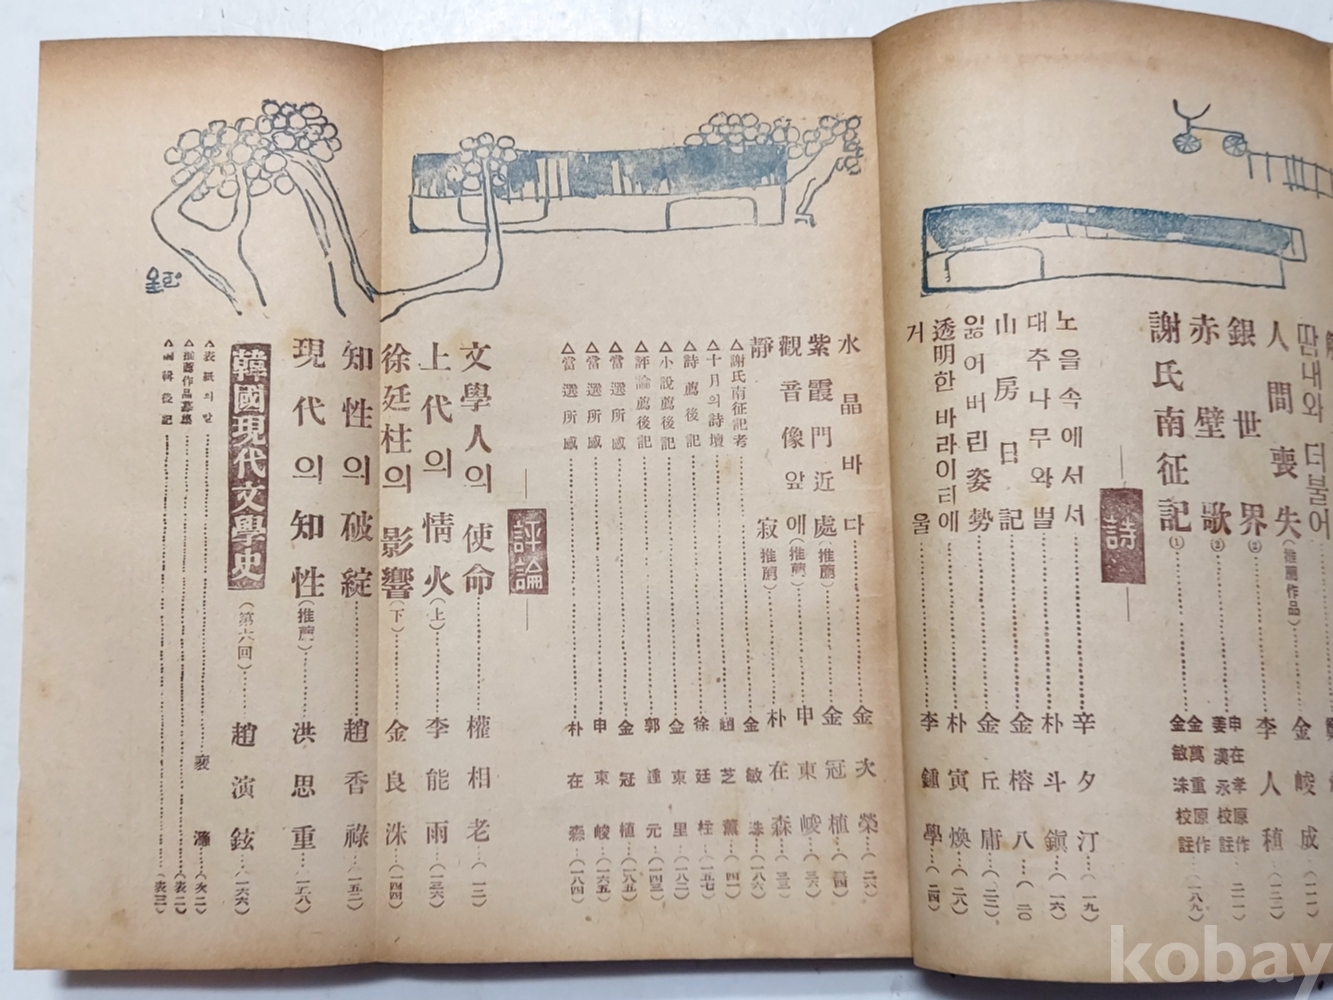 땀내와 더불어……金峻成…(一一)
人間喪失(推薦作品)……李人稙…(一二二)
銀世界(2)……申在孝原作 二一一
赤壁歌(3)……姜漢永校註
謝氏南征記(1)……金萬重原作
金敏洙校註…(一八九)
詩
노을속에서서……辛夕汀…(一九)
대추나무와벌……朴斗鎭…(一六)
山房日記……金榕八…(二〇
잃어버린姿勢……金丘庸…(三二)
透明한바라이티에……朴寅煥…(二八)
거울……李鍾學…(二四)
水晶바다……金次榮…(二六)
紫霞門近處(推薦)……金冠植…(三四)
觀音像앞에(推薦)……申東峻…(三六)
靜寂(推薦)……朴在森…(三三)
△謝氏南征記考……金敏洙…(一八六)
△十月의詩壇……趙芝薰…(四一)
△詩薦後記……徐廷柱…(一五七)
△小說薦後記……金東里…(一八二)
△評論薦後記……郭鍾元…(一四三)
△當選所感……金冠植…(一八五)
△當選所感……申東峻…(一六五)
△當選所感……朴在森…(一八四)
評論
文學人의使命……權相老…(一二)
上代의情火(上)……李能雨…(一三六)
徐廷柱의影響(下)……金良洙…(一四四)
知性의破綻……趙香祿…(一五二)
現代의知性(推薦)……洪思重…(一五八)
韓國現代文學史(第六回)…趙演鉉…(一六六)
△表紙의말……裵濂…(次二)
△推薦作品募集……(表二)
△編輯後記……(表三)
kobay